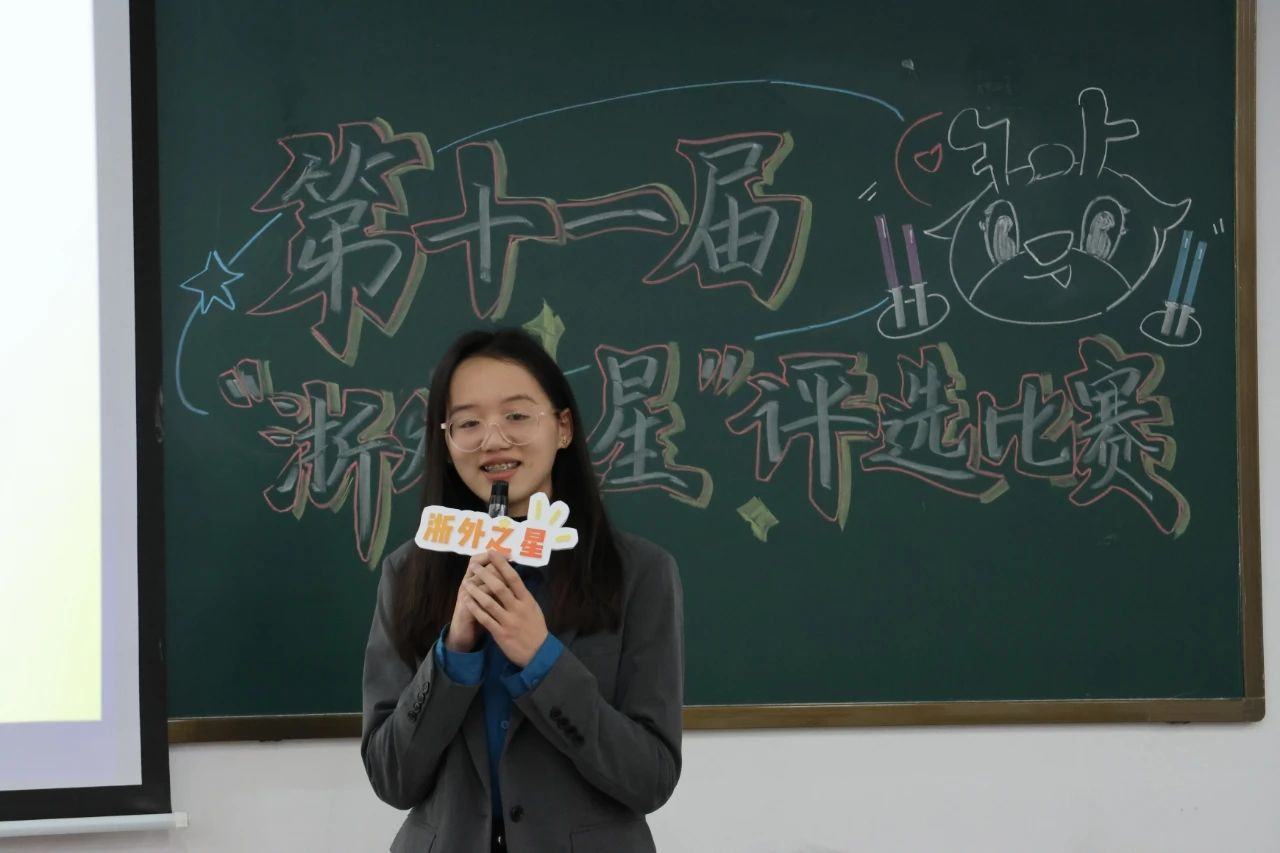 第十一届
“浙外 星”评选比赛
浙外之星